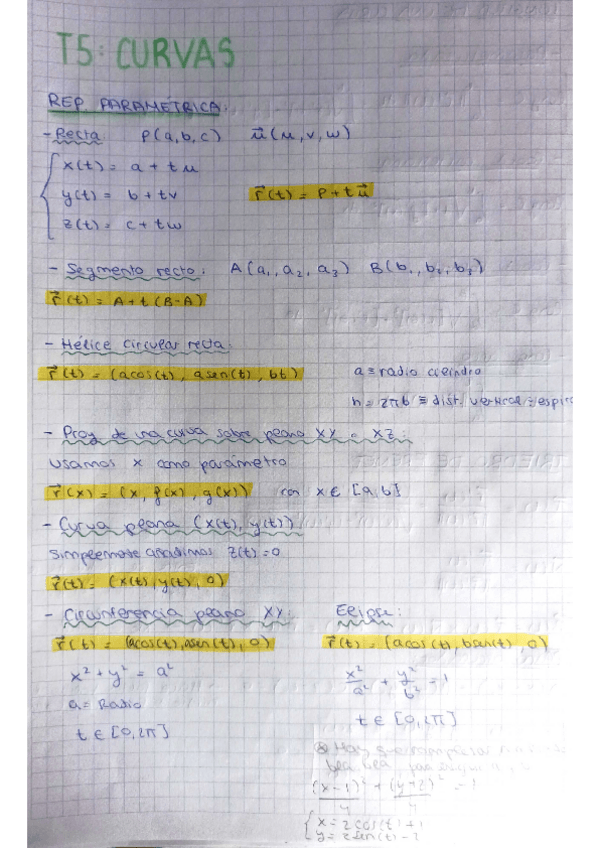 T5: CURVAS
REP. PARAMÉTRICA:
- Recta: P(a,b,c) u⃗(u,v,w)
x(t) = a + tu
y(t) = b + tv r⃗(t) = P + t u⃗
z(t) = c + tw
- Segmento recto: A(a₁, a₂, a₃) B(b₁, b₂, b₃)
r⃗(t) = A + t(B-A)
- Hélice circular recta:
r⃗(t) = (acos(t), asen(t), bt) a ≡ radio cilindro
h = 2πb ≡ dist. vertical espira
- Proy de una curva sobre plano XY o XZ:
usamos x como parámetro
r⃗(x) = (x, f(x), g(x)) con x ∈ [a,b]
- Curva plana (x(t), y(t))
simplemente añadimos z(t) = 0
r⃗(t) = (x(t), y(t), 0)
- Circunferencia plano XY: Elipse:
r⃗(t) = (acos(t), asen(t), 0) r⃗(t) = (acos(t), bsen(t), 0)
x² + y² = a² x²/a² + y²/b² = 1
a = Radio
t ∈ [0,2π] t ∈ [0,2π]
Hay que
(x-1)²/4 + (y+2)²/4 = 1
x = 2cos(t)+1
y = 2sen(t)-2